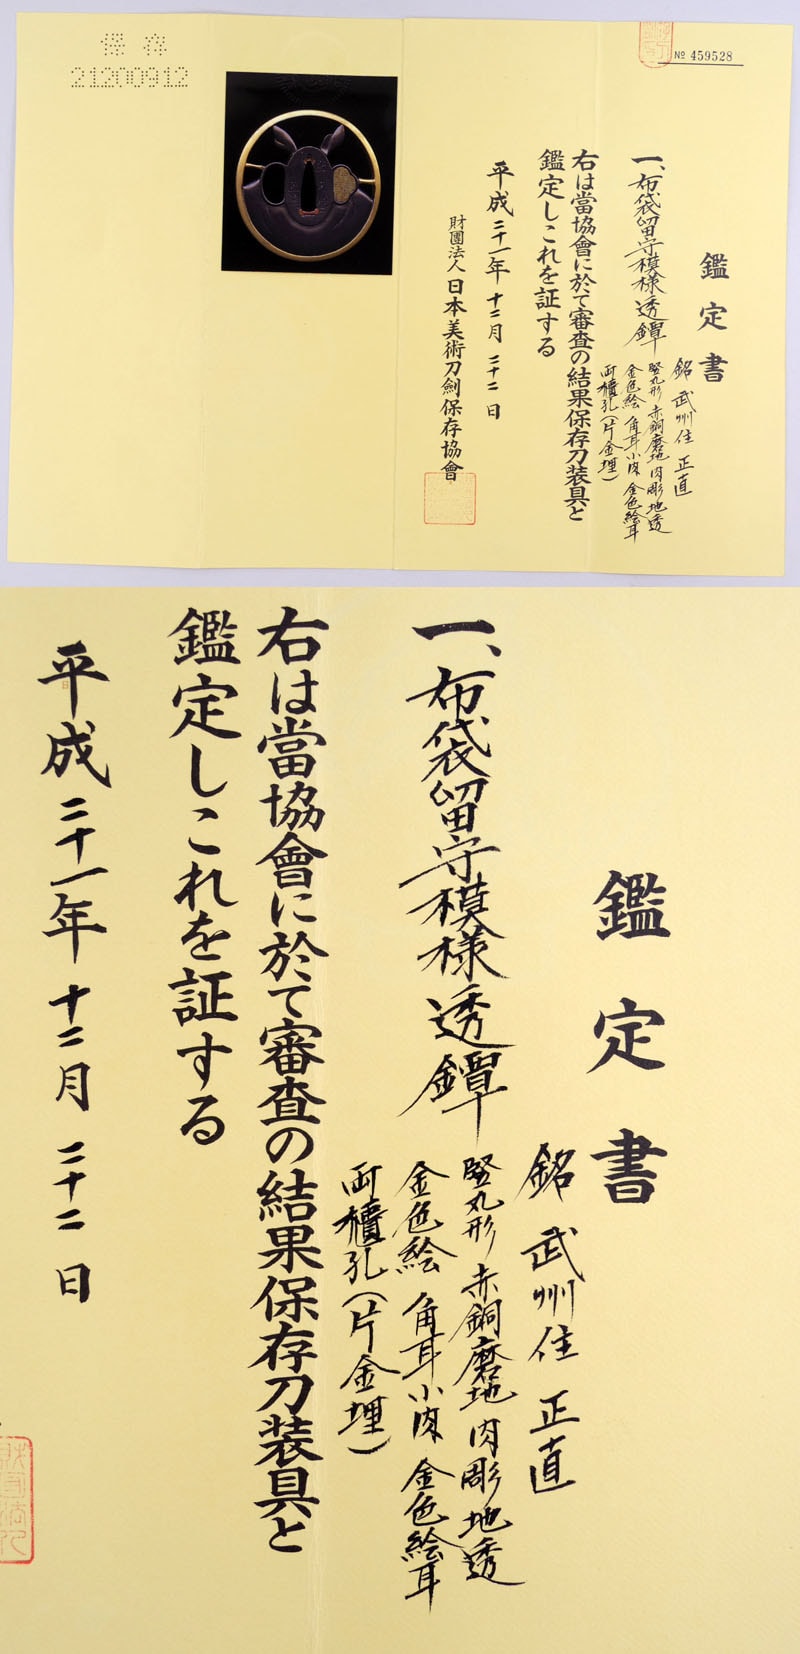 保存
21200912
№ 459528
鑑定書
銘 武州住 正直
一、布袋留守模様透鐔
竪丸形 赤銅磨地 肉彫地透
金色絵 角耳小肉 金色絵耳
両櫃孔(片金埋)
右は當協會に於て審査の結果保存刀装具と
鑑定しこれを証する
平成二十一年 十二月 二十二日
財團法人 日本美術刀劍保存協會
鑑定書
銘 武州住 正直
一、布袋留守模様透鐔
竪丸形 赤銅磨地 肉彫地透
金色絵 角耳小肉 金色絵耳
両櫃孔(片金埋)
右は當協會に於て審査の結果保存刀装具と
鑑定しこれを証する
平成二十一年 十二月 二十二日
財團法人